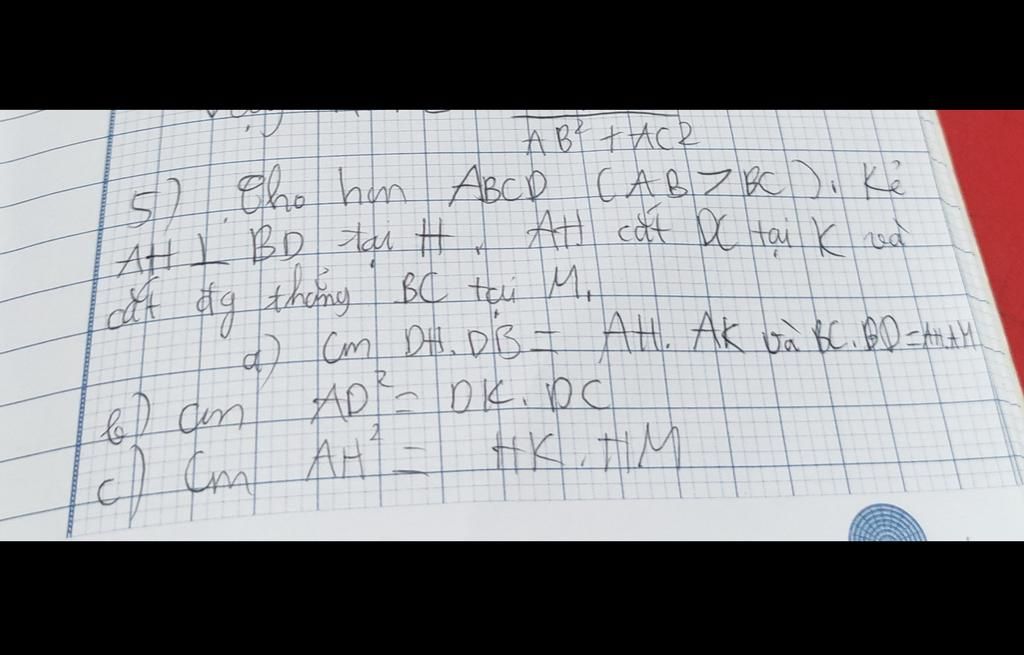 AB² + AC2
5) Cho hcn ABCD (AB > BC). Kẻ
AH ⊥ BD tại H, AH cắt DC tại K và
cắt đg thẳng BC tại M.
a) Cm DH. DB = AH. AK và BC. BD = AH. AM
b) Cm AD² = DK. DC
c) Cm AH² = HK. HM